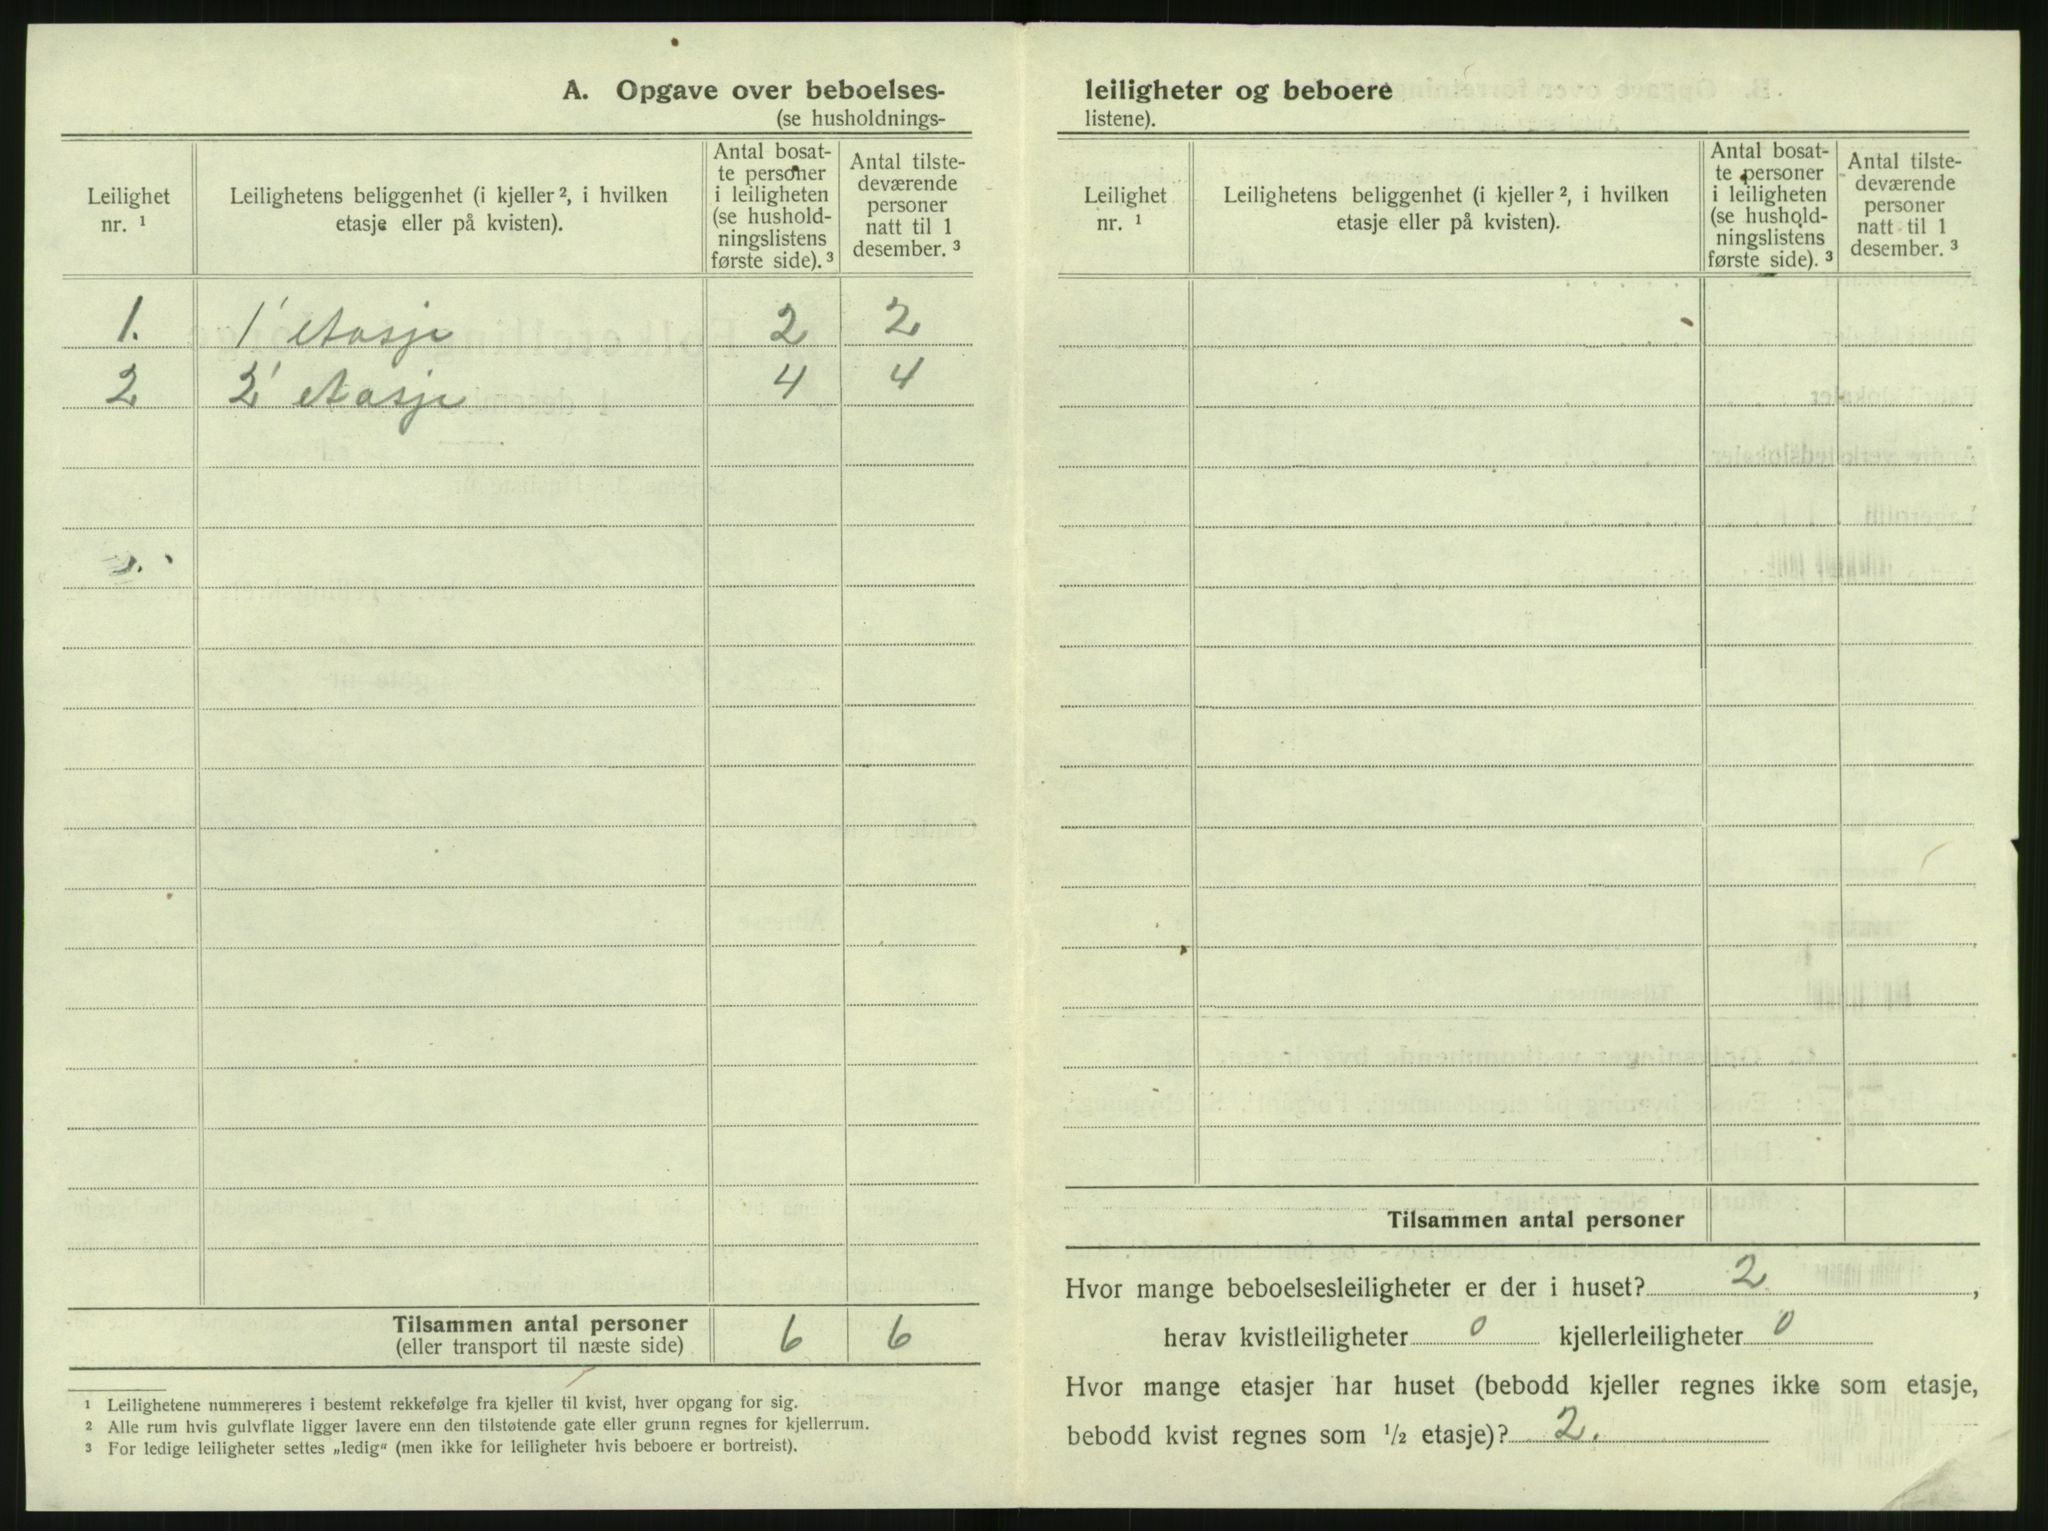 A. Opgave over beboelses-
(se husholdnings-
Leilighet nr. ¹
Leilighetens beliggenhet (i kjeller ², i hvilken etasje eller på kvisten).
Antal bosat-
te personer
i leiligheten
(se hushold-
ningslistens
første side). ³
Antal tilste-
deværende
personer
natt til 1
desember. ³
1. 1' etasje 2 2
2 2' etasje 4 4
Tilsammen antal personer 6 6
(eller transport til næste side)
¹ Leilighetene nummereres i bestemt rekkefølge fra kjeller til kvist, hver opgang for sig.
² Alle rum hvis gulvflate ligger lavere enn den tilstøtende gate eller grunn regnes for kjellerrum.
³ For ledige leiligheter settes „ledig“ (men ikke for leiligheter hvis beboere er bortreist).
leiligheter og beboere
listene).
Leilighet nr. ¹
Leilighetens beliggenhet (i kjeller ², i hvilken etasje eller på kvisten).
Antal bosat-
te personer
i leiligheten
(se hushold-
ningslistens
første side). ³
Antal tilste-
deværende
personer
natt til 1
desember. ³
Tilsammen antal personer
Hvor mange beboelsesleiligheter er der i huset? 2 ,
herav kvistleiligheter 0 kjellerleiligheter 0
Hvor mange etasjer har huset (bebodd kjeller regnes ikke som etasje,
bebodd kvist regnes som ½ etasje)? 2.